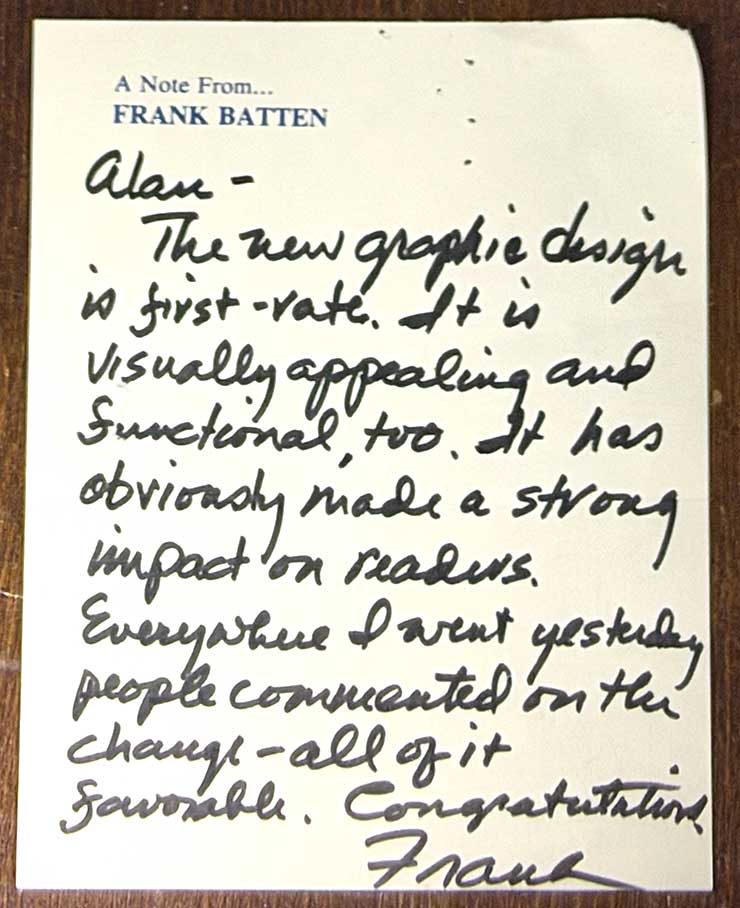 A Note From...
FRANK BATTEN
Alan -
The new graphic design
is first-rate. It is
visually appealing and
functional, too. It has
obviously made a strong
impact on readers.
Everywhere I went yesterday
people commented on the
change - all of it
favorable. Congratulations
Frank